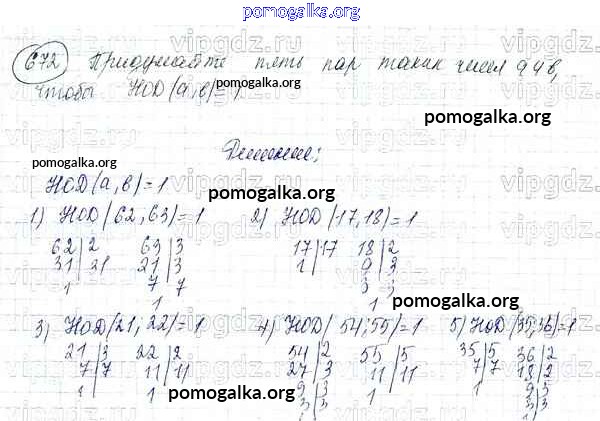 pomogalka.org
672 Придумайте пять пар таких чисел a и b,
чтобы НОД (a, b) = 1
pomogalka.org
Решение:
НОД (a, b) = 1
1) НОД (62, 63) = 1 2) НОД (17, 18) = 1
62 | 2 63 | 3 17 | 17 18 | 2
31 | 21 21 | 3 1 | 9 | 3
1 | 7 | 7 3 | 3
1 | 1 |
3) НОД (21, 22) = 1 4) НОД (54; 55) = 1 5) НОД (35; 36) = 1
21 | 3 22 | 2 54 | 2 55 | 5 35 | 5 36 | 2
7 | 7 11 | 11 27 | 3 11 | 11 7 | 7 18 | 2
1 | 1 | 9 | 3 1 | 1 | 9 | 3
3 | 3 3 | 3
1 | 1 |
pomogalka.org
vipgdz.ru